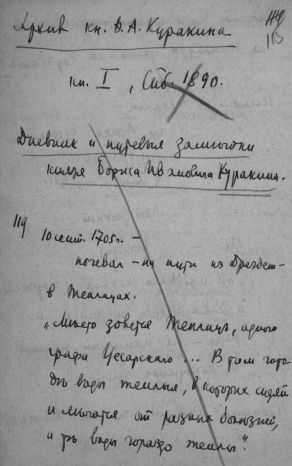 Архив кн. Ѳ.А. Куракина
кн. I, Спб. 1890.
Дневник и путевыя заметки
князя Бориса Ивановича Куракина.
119
10 сент. 1705 г. –
ночевал – на пути из Дрезден-
в Теплицах.
„Место зовется Теплицъ, одного
графа Цесарскаго ... В том горо-
дѣ воды теплыя, в которых сидят
и лѣчатся от разных болѣзней,
и тѣ воды гораздо теплы".